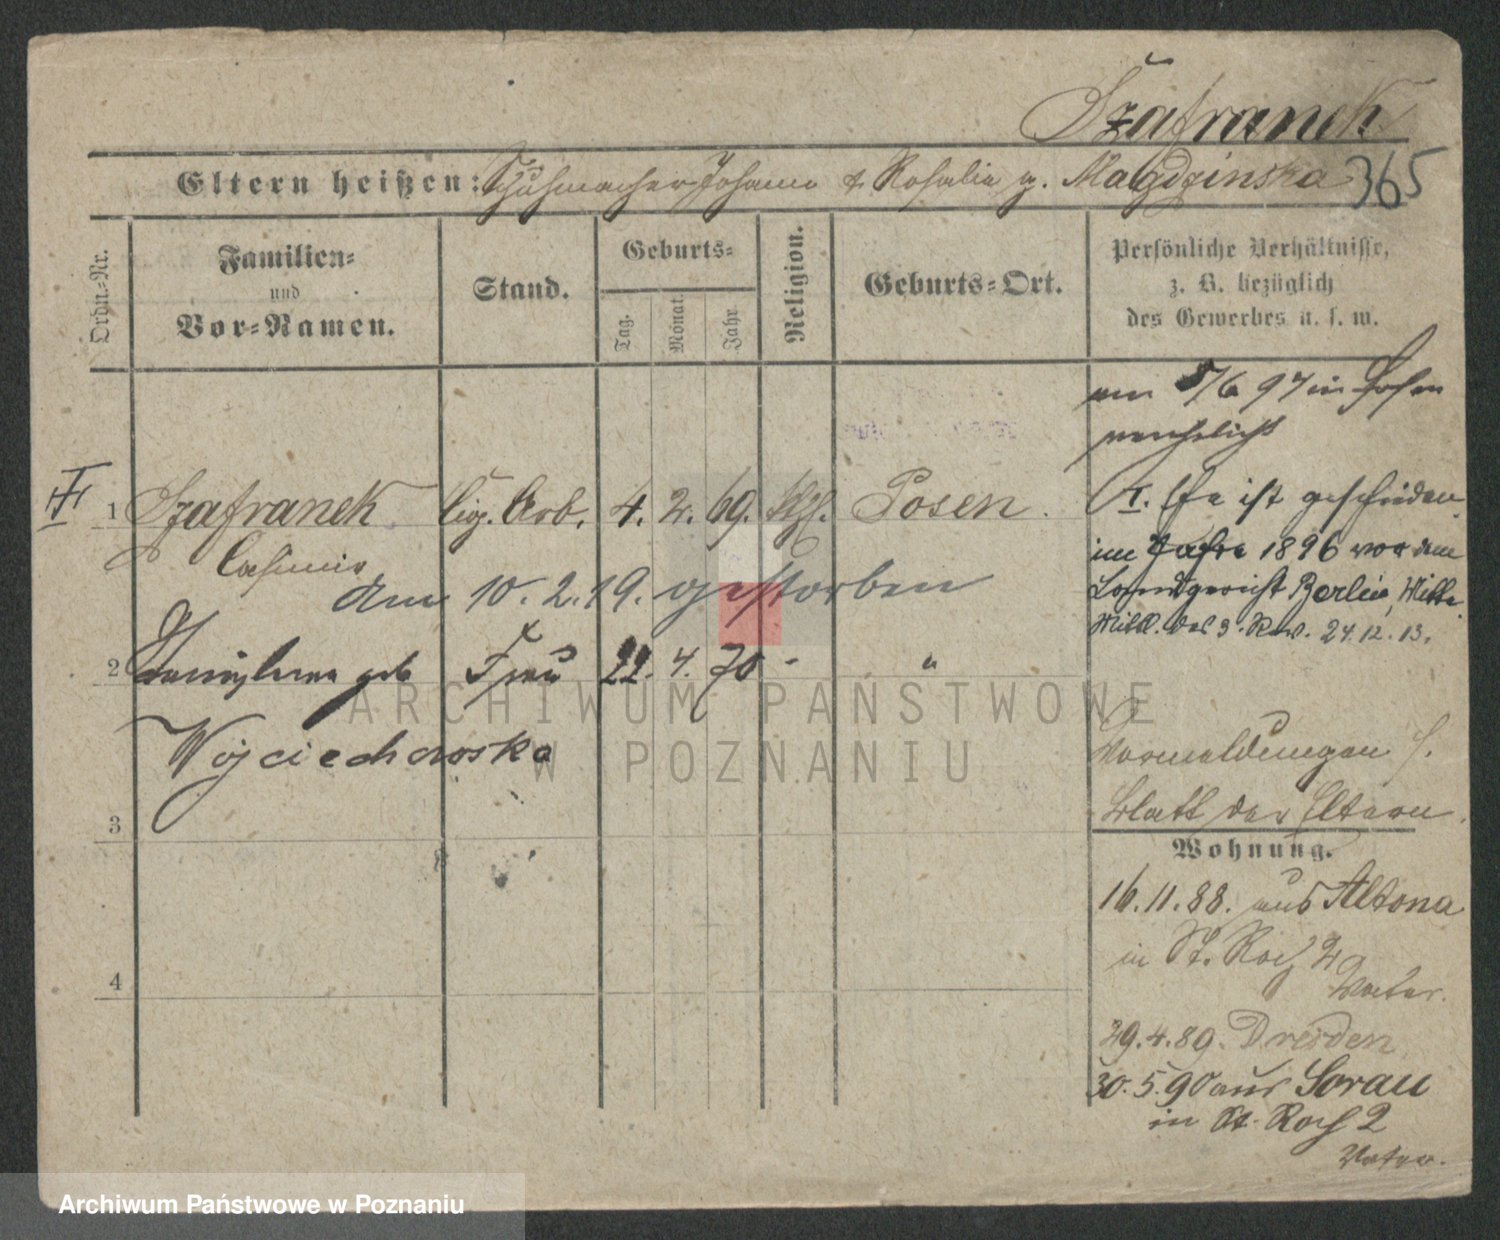 Szafranek
Eltern heißen: Schuhmacher Johann & Rosalia g. Magdzinska 365
Ordn.-Nr.
Familien-
und
Vor-Namen.
Stand.
Geburts-
Tag.
Monat.
Jahr.
Religion.
Geburts-Ort.
Persönliche Verhältnisse,
z. B. bezüglich
des Gewerbes u. s. w.
am 5/6 97 in Posen
verehelicht
1 Szafranek Cig. Arb. 4. 2. 69. Kth. Posen.
Casimir
am 10. 2. 19. gestorben
I. Ehe ist geschieden
im Jahre 1896 vor dem
Landgericht Berlin, Mitte.
Mittl. des 3. Rev. 24. 12. 13.
2 geb Frau 22. 4. 70 - "
Wojciechowska
Vormeldungen s.
Blatt der Eltern.
3
Wohnung.
16. 11. 88. aus Altona
in St. Roch 2
Vater.
4
29. 4. 89. Dresden
30. 5. 90 aus Sorau
in St. Roch 2
Vater.
ARCHIWUM PAŃSTWOWE
W POZNANIU
Archiwum Państwowe w Poznaniu